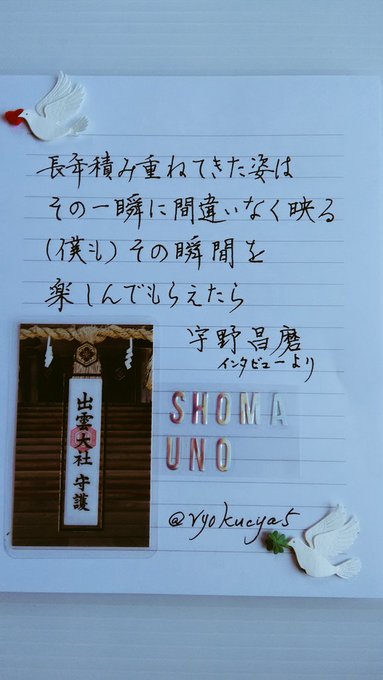 長年積み重ねてきた姿は
その一瞬に間違いなく映る
(僕も)その瞬間を
楽しんでもらえたら
宇野昌磨
インタビューより
出雲大社 守護
SHOMA
UNO
@ryokucya5